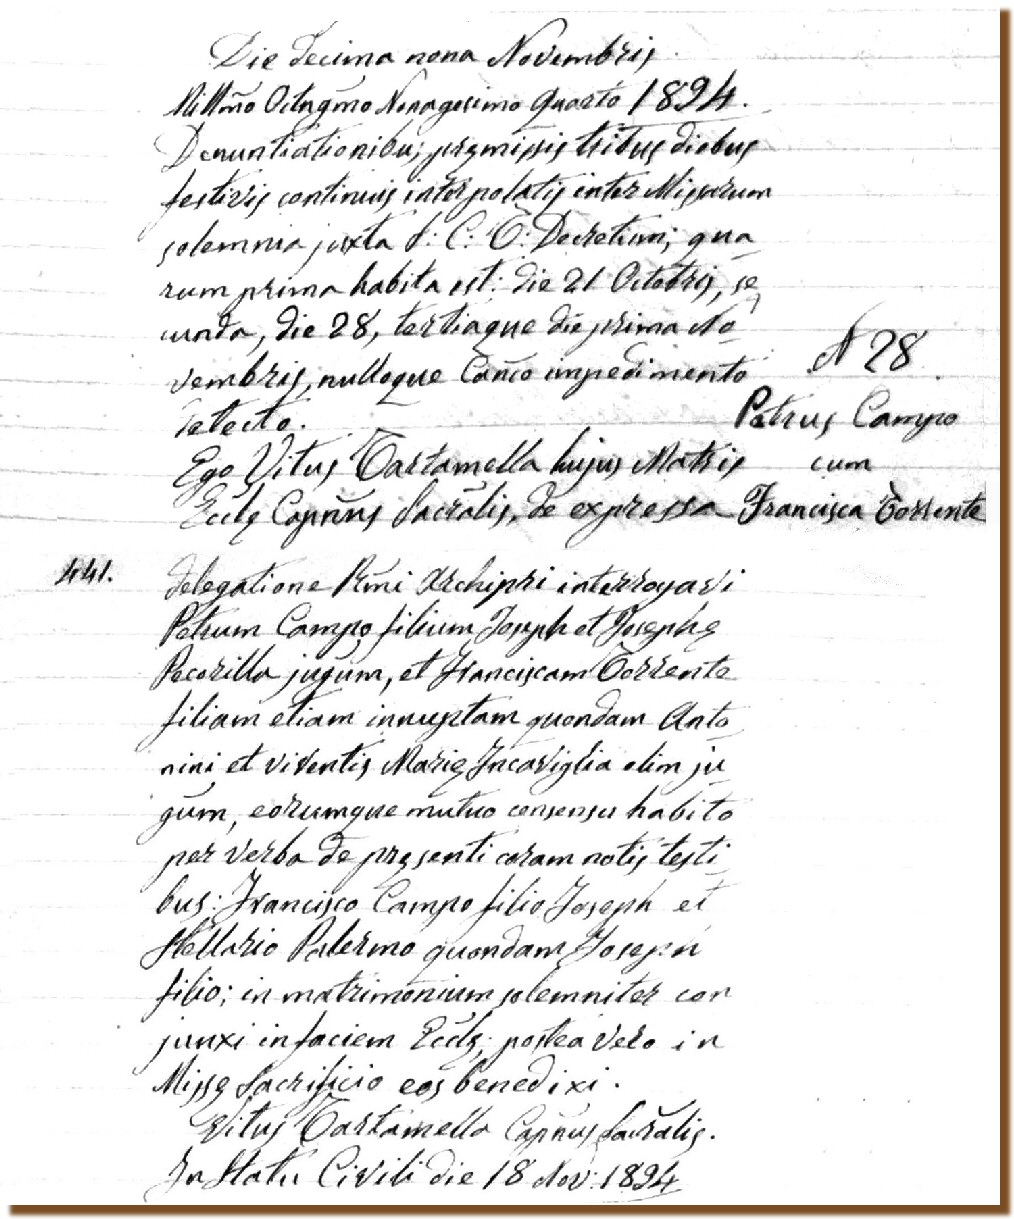 Die decima nona Novembris
Millmo Octngmo Nonagesimo Quarto 1894.
Denuntiationibus premissis tribus diebus
festivis continuis interpolatis inter Missarum
solemnia juxta S: C: T: Decretum; qua
rum prima habita est: die 21 Octobris, se
cunda, die 28, tertiaque die prima No
vembris, nulloque Canco impedimento
detecto.
Ego Vitus Tartamella hujus Matris
Eccle Capnus Sacralis, de expressa
N 28
Petrus Campo
cum
Francisca Torrente
441.
delegatione Rmi Archipri interrogavi
Petrum Campo filium Joseph et Josephe
Pecorilla jugum, et Franciscam Torrente
filiam etiam innuptam quondam Anto
nini et viventis Marie Incaviglia olim ju
gum, eorumque mutuo consensu habito
per verba de presenti coram notis testi
bus: Francisco Campo filio Joseph et
Stellario Palermo quondam Joseph
filio; in matrimonium solemniter con
junxi in faciem Eccle; postea vero in
Misse Sacrificio eos benedixi.
Vitus Tartamella Capnus Sacralis.
In Statu Civili die 18 Nov: 1894